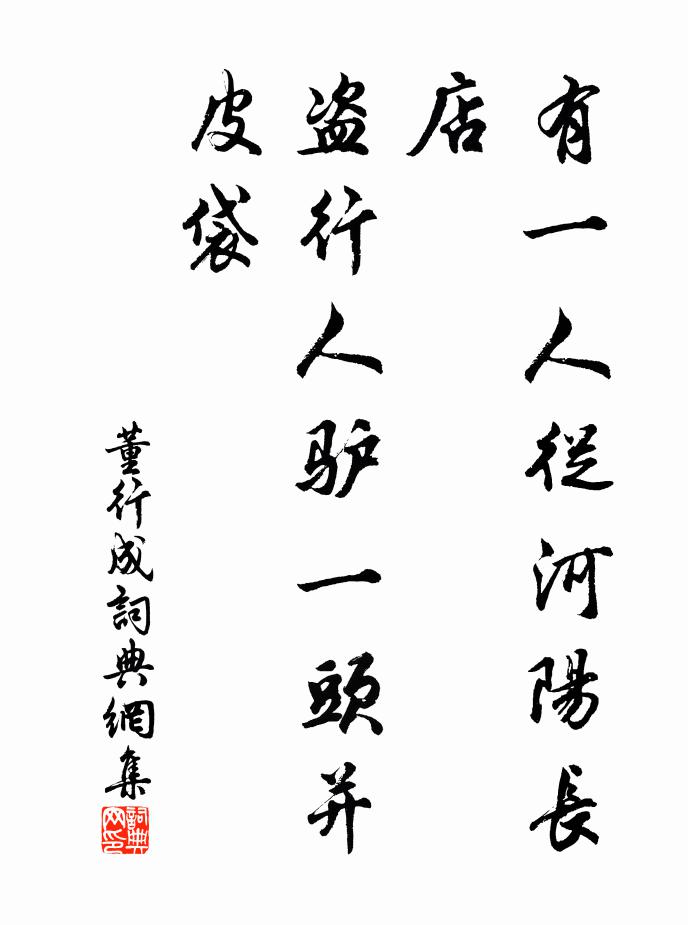 有一人從河陽長
店
盗行人驴一頭并
皮袋
董行成詞典網集
詞典网印